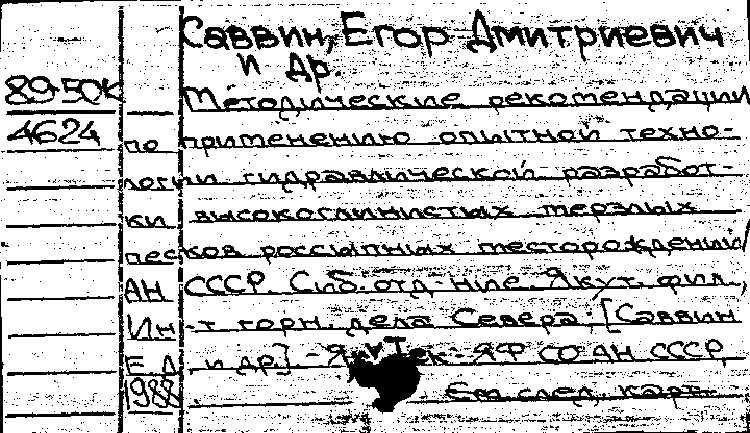 Саввин, Егор Дмитриевич
и др.
89-50к Методические рекомендации
4624 по применению опытной техно-
логии гидравлической разработ-
ки высокоглинистых мерзлых
песков россыпных месторождений /
АН СССР. Сиб. отд-ние. Якут. фил.,
Ин-т горн. дела Севера; [Саввин
Е.Д. и др.] - Якутск - ЯФ СО АН СССР,
1988. См. след. карт.